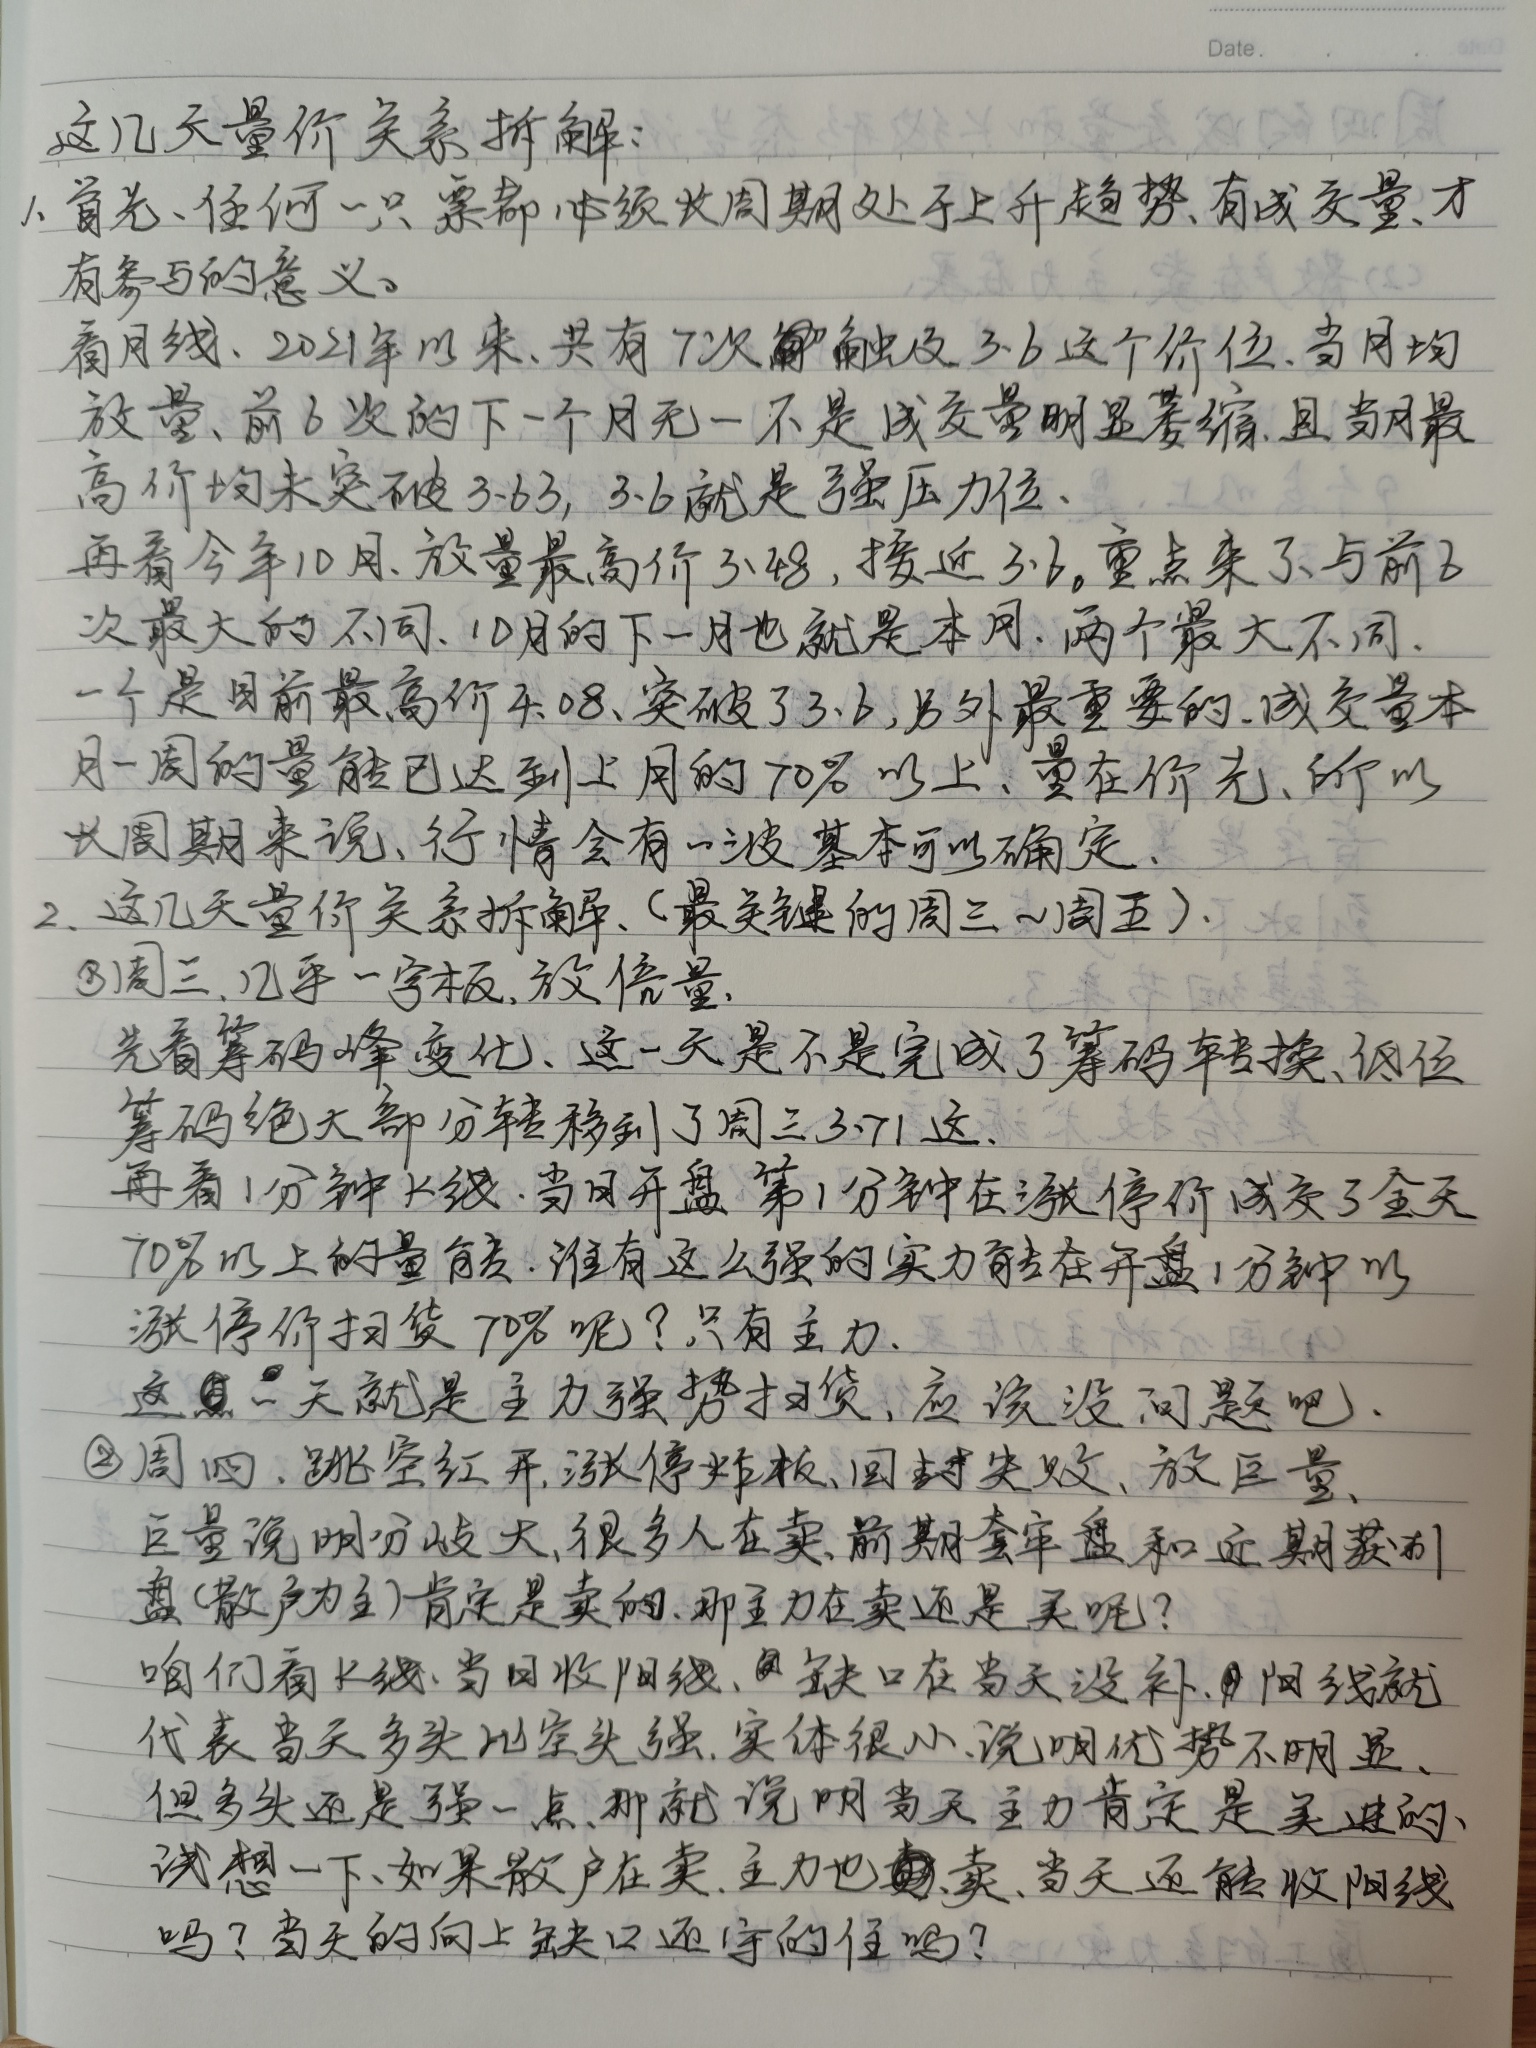 Date.
这几天量价关系拆解：
1、首先、任何一只票都必须长周期处于上升趋势、有成交量、才
有参与的意义。
看月线、2021年以来、共有7次触及3.6这个价位、当月均
放量、前6次的下一个月无一不是成交量明显萎缩、且当月最
高价均未突破3.63，3.6就是强压力位、
再看今年10月、放量最高价3.48，接近3.6。重点来了、与前6
次最大的不同、10月的下一月也就是本月、两个最大不同、
一个是目前最高价4.08、突破了3.6，另外最重要的、成交量本
月一周的量能已达到上月的70%以上、量在价先、所以
长周期来说、行情会有一波基本可以确定、
2、这几天量价关系拆解、（最关键的周三~周五）、
①周三、几乎一字板、放倍量、
先看筹码峰变化、这一天是不是完成了筹码转换、低位
筹码绝大部分转移到了周三3.71这、
再看1分钟K线、当日开盘第1分钟在涨停价成交了全天
70%以上的量能、谁有这么强的实力能在开盘1分钟以
涨停价扫货70%呢？只有主力、
这一天就是主力强势扫货、应该没问题吧、
②周四、跳空红开、涨停炸板、回封失败、放巨量、
巨量说明分歧大、很多人在卖、前期套牢盘和近期获利
盘（散户为主）肯定是卖的、那主力在卖还是买呢？
咱们看K线、当日收阳线、缺口在当天没补、阳线就
代表当天多头比空头强、实体很小、说明优势不明显、
但多头还是强一点、那就说明当天主力肯定是买进的、
试想一下、如果散户在卖、主力也卖、当天还能收阳线
吗？当天的向上缺口还守的住吗？